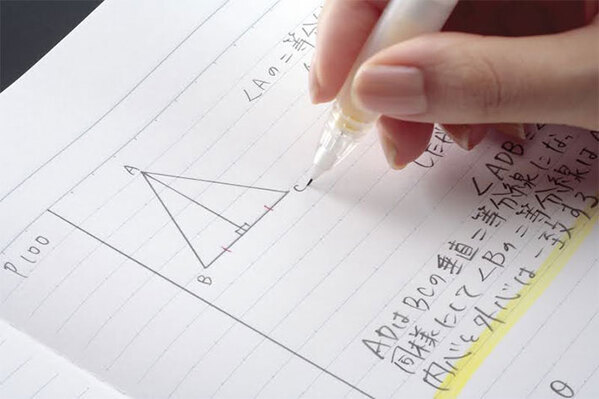 P100
A
B
C
∠Aの二等分
∠ADB
ADはBCの垂直二等分線にな
同様にして∠Bの二等分線は
内心と外心は一致する
θ